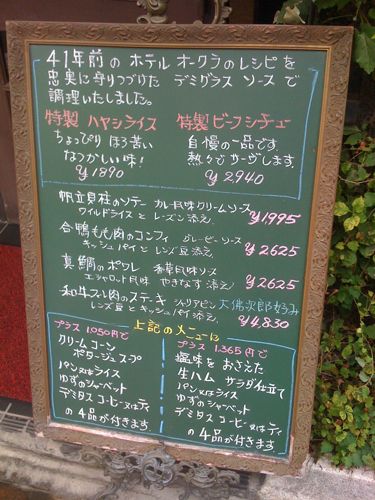 41年前のホテルオークラのレシピを
忠実に守りつづけたデミグラスソースで
調理いたしました。
特製ハヤシライス
ちょっぴりほろ苦い
なつかしい味!
¥1890
特製ビーフシチュー
自慢の一品です
熱々でサーブします。
¥2,940
帆立貝柱のソテー カレー風味クリームソース
ワイルドライスとレーズン添え ¥1995
合鴨もも肉のコンフィ グレービーソース
キッシュパイとレンズ豆添え ¥2625
真鯛のポワレ 香草風味ソース
エシャロット風味 やきなす添え ¥2625
和牛フィレ肉のステーキ シャリアピン 大佛次郎好み
レンズ豆とキッシュパイ添え ¥4,830
上記のメニューに
プラス1.050円で
クリームコーン
ポタージュスープ
パン又はライス
ゆずのシャーベット
デミタスコーヒー又はティ
の4品が付きます
プラス1.365円で
塩味をおさえた
生ハムサラダ仕立て
パン又はライス
ゆずのシャーベット
デミタスコーヒー又はティ
の4品が付きます。